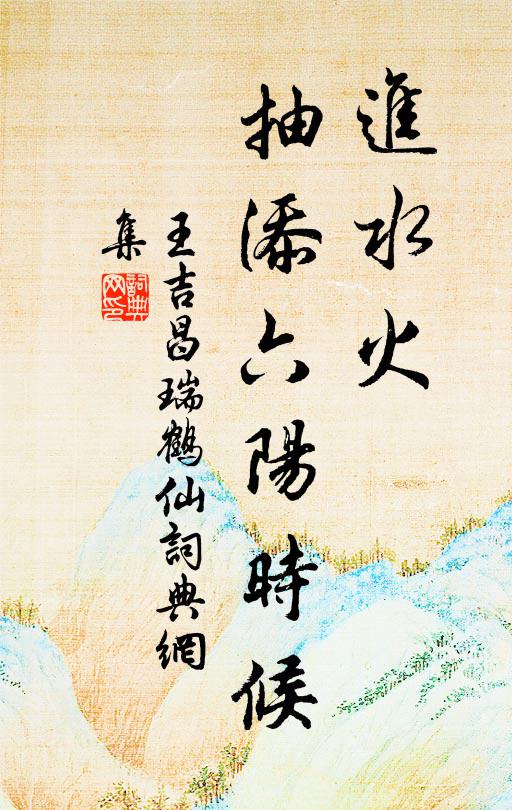 進水火
抽添六陽時候
王吉昌瑞鶴仙詞典網
集
詞典
网印